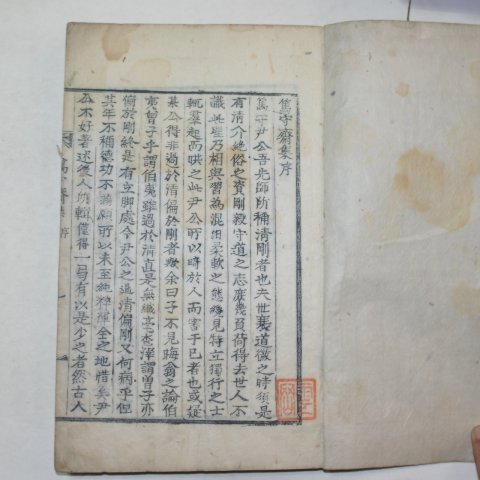 篤守齋集序
篤守尹公吾先師所稱清剛者也夫世衰道微之時須是
有清介絶俗之資剛毅守道之志庶幾負荷得去世人不
識此理乃相與習為混用柔軟之態纔見特立獨行之士
輒羣起而咻之此尹公所以畸於人而害于己者也或疑
某公得非過於清偏於剛者歟余曰子不見晦翁之論伯
夷曾子乎謂伯夷雖過於清直是無纖毫查滓謂曾子亦
偏於剛終是有立脚處令尹公之過清偏剛又何病乎但
其年不稱德功不满願所以未至純粹確全之地惜矣尹
公不好著述後人所輯僅得一易有以是少之者然古人
序